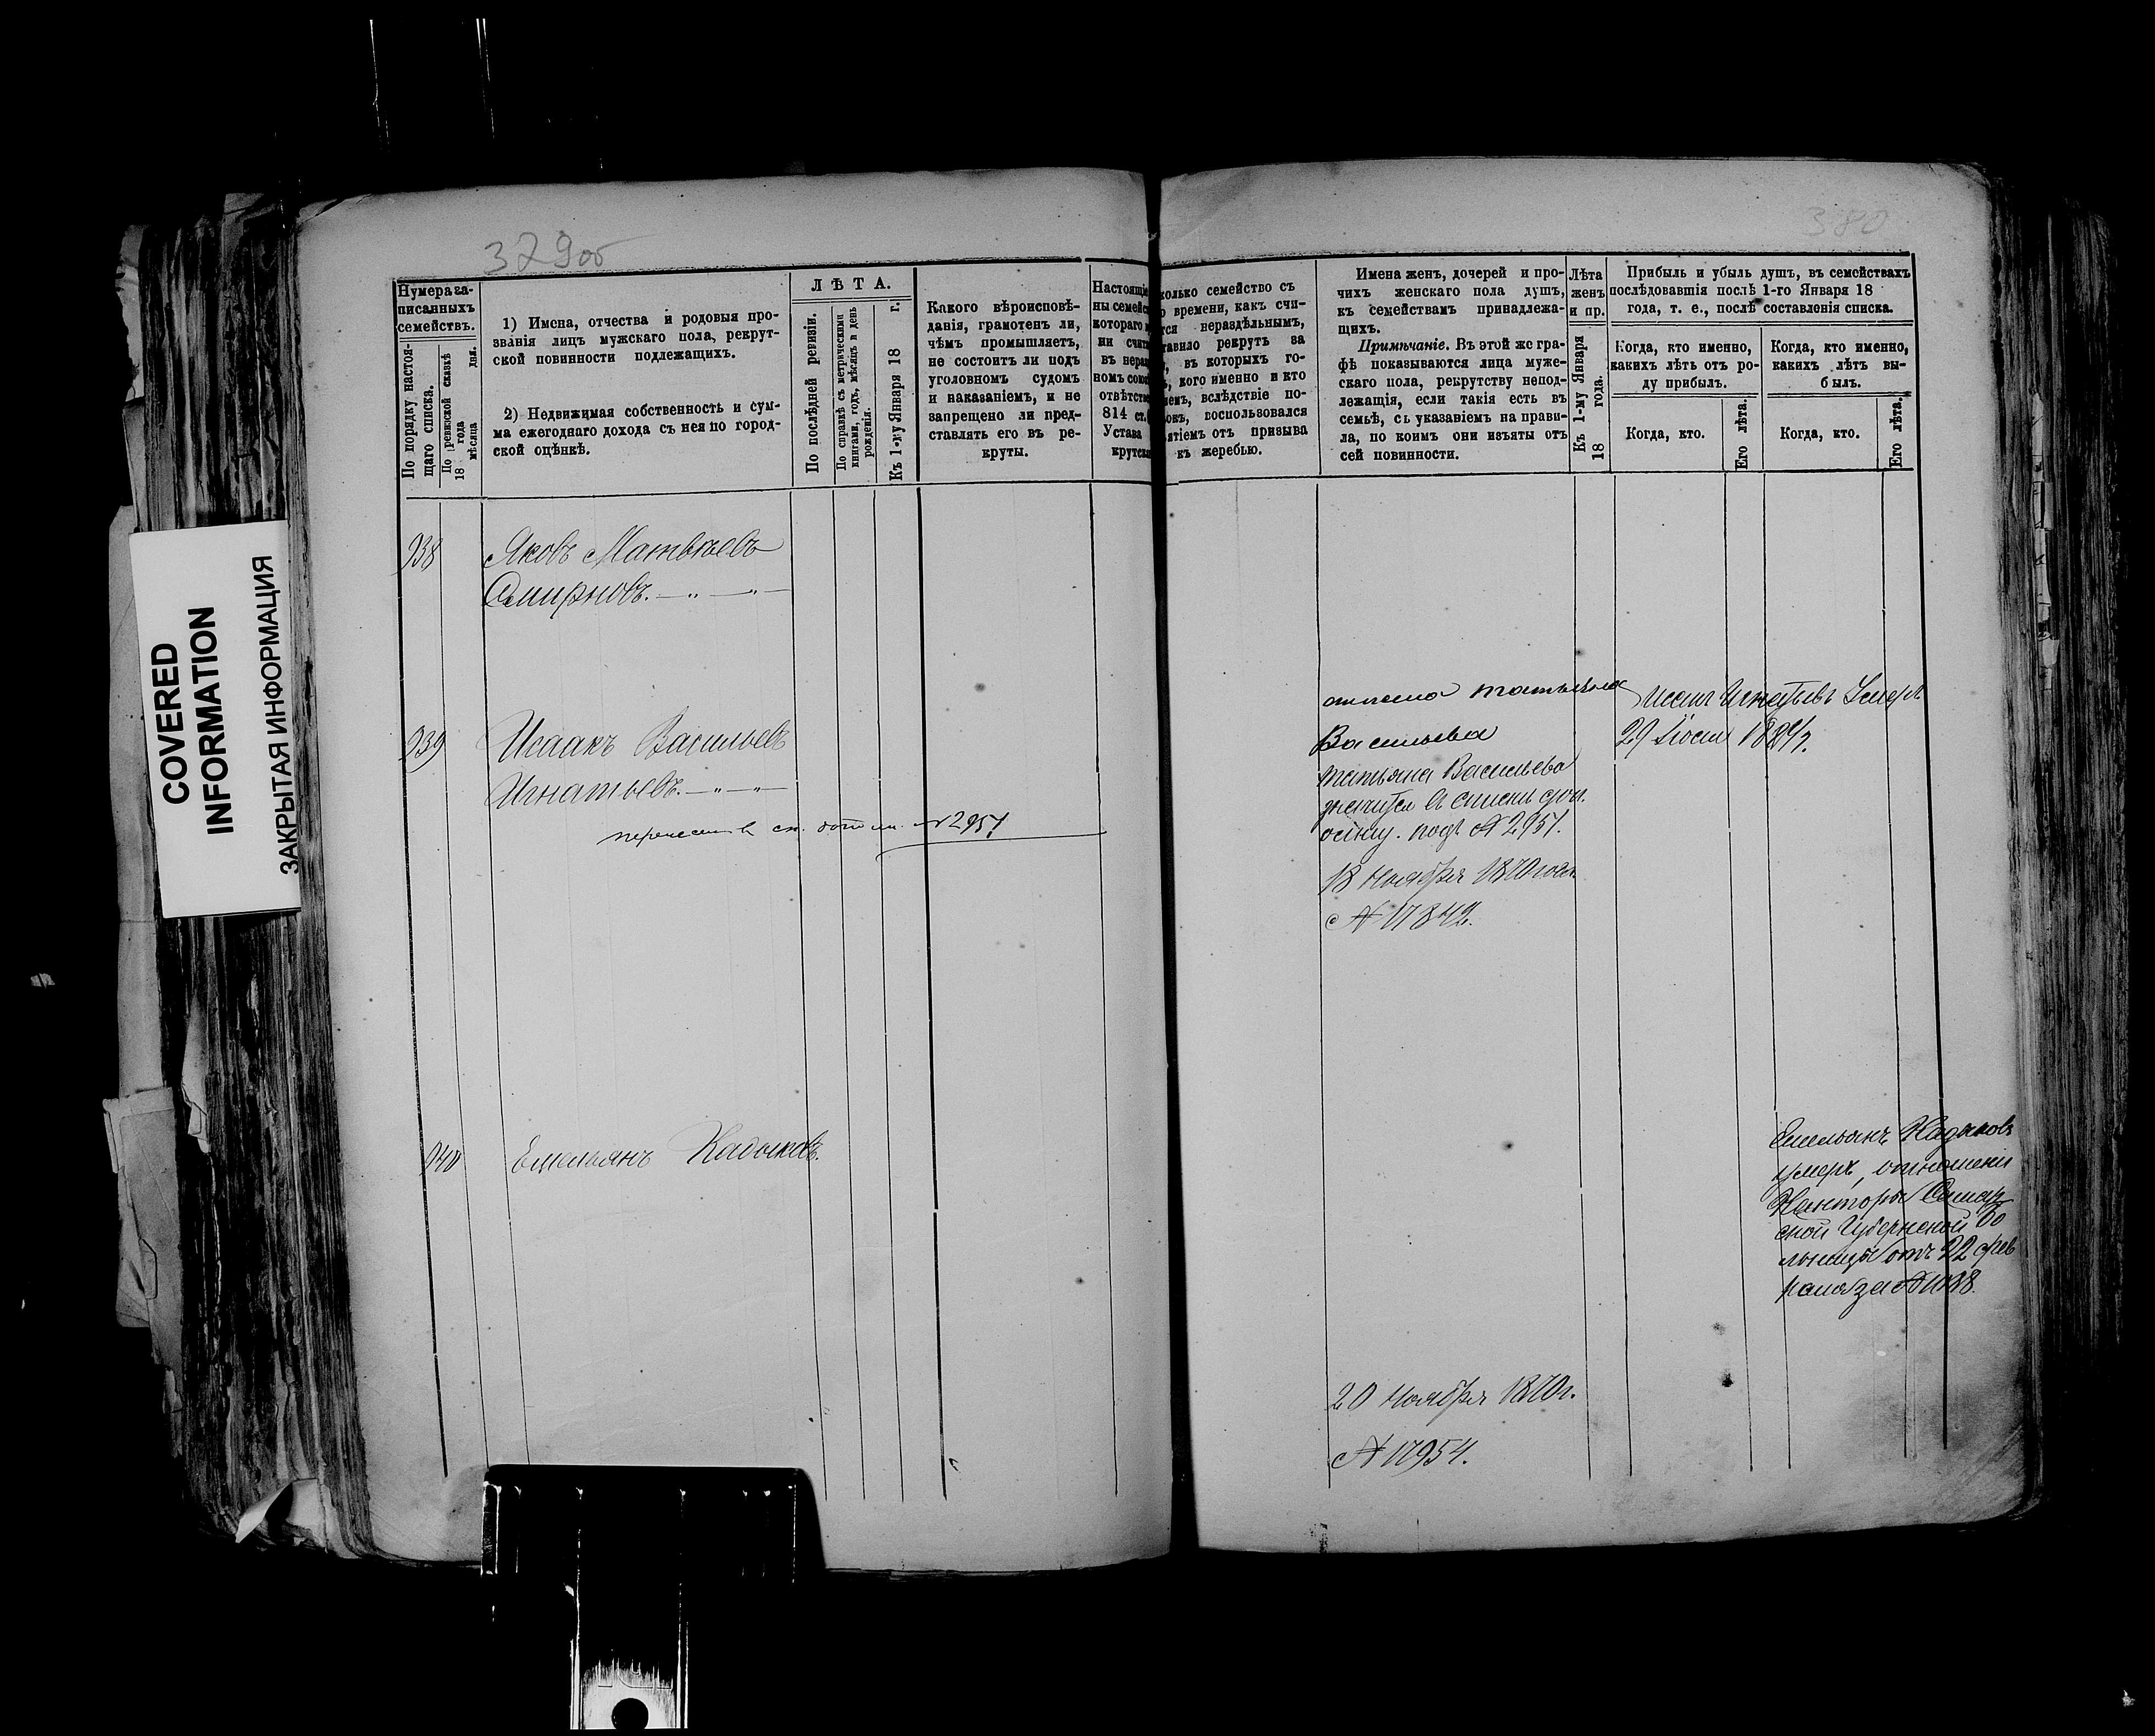 379об
380
COVERED
INFORMATION
ЗАКРЫТАЯ ИНФОРМАЦИЯ
Нумера за-
писанныхъ
семействъ.
По порядку настоя-
щаго списка.
По ревизской сказкѣ
18 года
мѣсяца дня.
1) Имена, отчества и родовыя про-
званія лицъ мужскаго пола, рекрут-
ской повинности подлежащихъ.
2) Недвижимая собственность и сум-
ма ежегоднаго дохода съ нея по город-
ской оцѣнкѣ.
ЛѢТА.
По послѣдней ревизіи.
По справкѣ съ метрическими
книгами, годъ, мѣсяцъ и день
рожденія.
Къ 1-му Января 18 г.
Какого вѣроисповѣ-
данія, грамотенъ ли,
чѣмъ промышляетъ,
не состоитъ ли подъ
уголовномъ судомъ
и наказаніемъ, и не
запрещено ли пред-
ставлять его въ ре-
круты.
Настоящі
ны семейс
котораго
ни счит
въ нераз
номъ сою
отвѣтств
814 ст.
Устава
крутск
колько семейство съ
о времени, какъ счи-
тся нераздѣльнымъ,
тавило рекрутъ за
, въ которыхъ го-
ъ, кого именно и кто
емъ, вслѣдствіе по-
окъ, воспользовался
ятіемъ отъ призыва
къ жеребью.
Имена женъ, дочерей и про-
чихъ женскаго пола душъ,
къ семействамъ принадлежа-
щихъ.
Примѣчаніе. Въ этой же гра-
фѣ показываются лица муже-
скаго пола, рекрутству непод-
лежащія, если такія есть въ
семьѣ, съ указаніемъ на прави-
ла, по коимъ они изъяты отъ
сей повинности.
Лѣта
женъ
и пр.
Къ 1-му Января
18 года.
Прибыль и убыль душъ, въ семействахъ
послѣдовавшія послѣ 1-го Января 18
года, т. е., послѣ составленія списка.
Когда, кто именно,
какихъ лѣтъ отъ ро-
ду прибылъ.
Когда, кто именно,
какихъ лѣтъ вы-
былъ.
Когда, кто.
Его лѣта.
Когда, кто.
Его лѣта.
938
Яковъ Матвѣевъ
Смирновъ.
939
Исаакъ Васильевъ
Игнатьевъ.
№ 2951
Васильева
Татьяна Васильева
подъ № 2951.
18 Ноября 1870 года
№ 17842.
Игнатьевъ Умеръ
29
940
Емельянъ Кадыковъ.
Емельянъ Кадыковъ
умеръ, отношеніе
Конторы Самар
ской Губернской Бо
льницы отъ 22 фев
раля за №
20 Ноября 1870 г.
№ 17954.